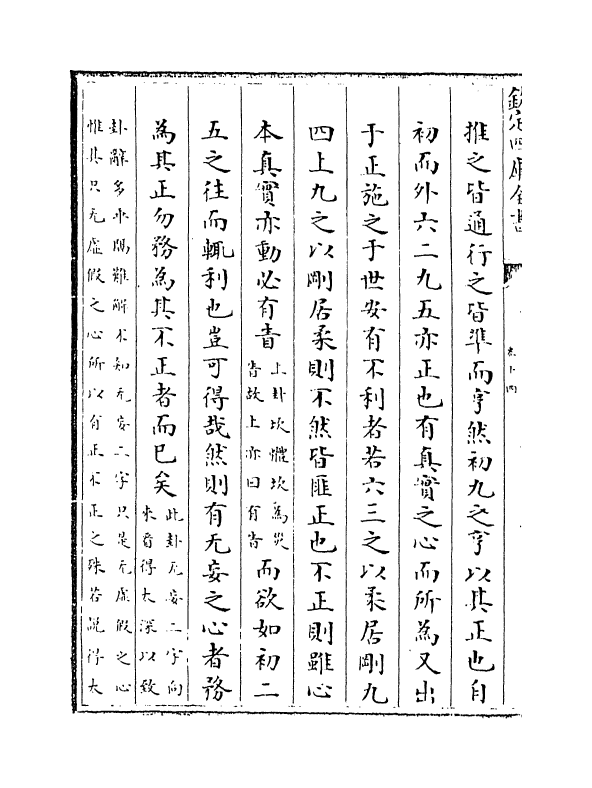 欽定四庫全書
推之皆通行之皆準而亨然初九之亨以其正也自
初而外六二九五亦正也有真實之心而所為又出
于正施之于世安有不利者若六三之以柔居剛九
四上九之以剛居柔則不然皆匪正也不正則雖心
本真實亦動必有眚
上卦坎體坎為災
眚故上亦曰有眚
而欲如初二
五之往而輒利也豈可得哉然則有无妄之心者務
為其正勿務為其不正者而已矣
此卦无妄二字向
來看得太深以致
卦辭多乖隔難解不知无妄二字只是无虛假之心
惟其只无虛假之心所以有正不正之殊若說得太